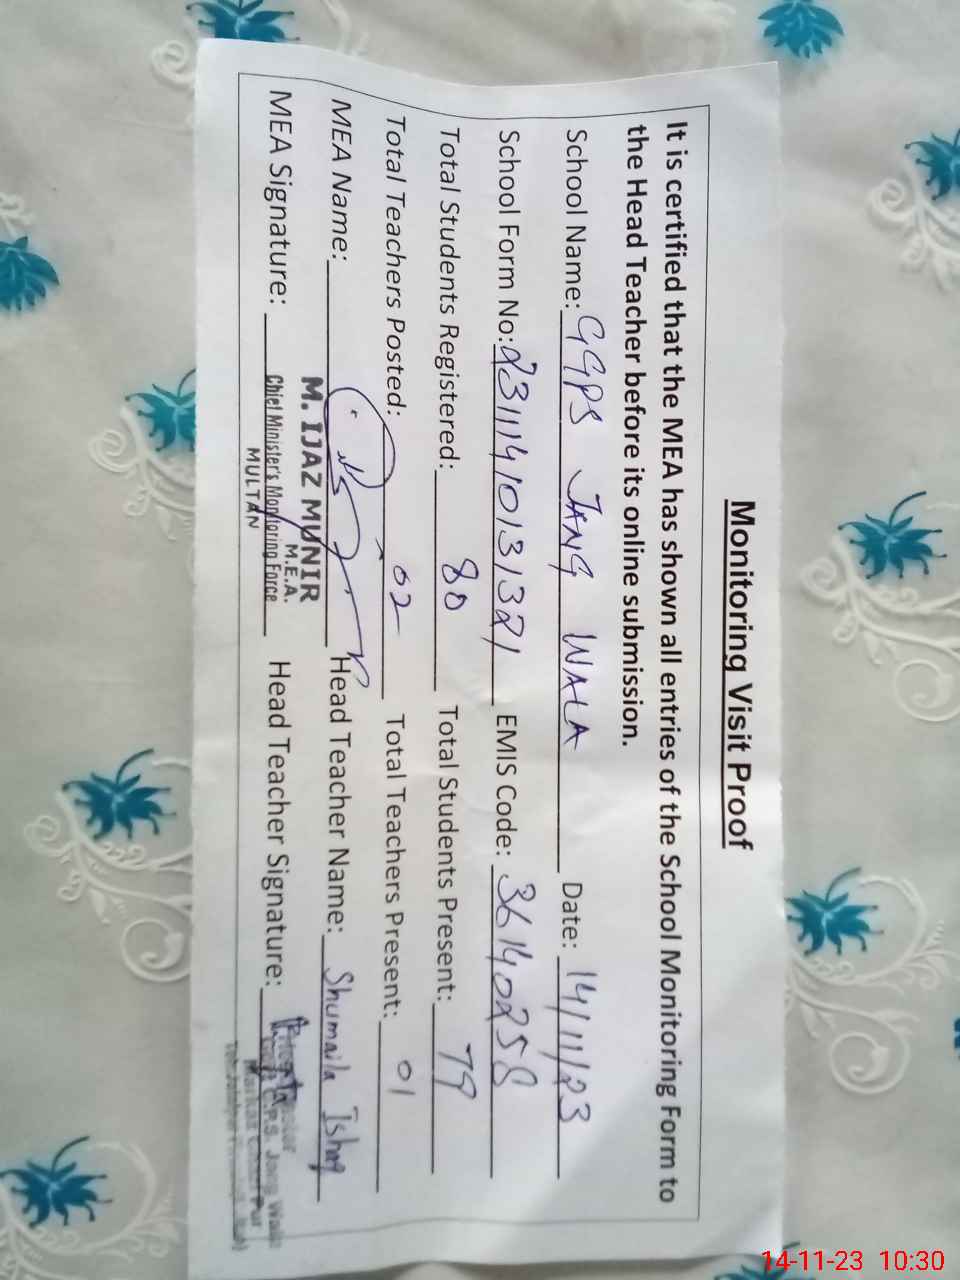 Monitoring Visit Proof
It is certified that the MEA has shown all entries of the School Monitoring Form to
the Head Teacher before its online submission.
School Name: GGPS JANG WALA Date: 14/11/23
School Form No: 231114101313121 EMIS Code: 36140258
Total Students Registered: 80 Total Students Present: 79
Total Teachers Posted: 02 Total Teachers Present: 01
MEA Name: Head Teacher Name: Shumaila Ishaq
M. IJAZ MUNIR
M.E.A.
MEA Signature: Chief Minister's Monitoring Force Head Teacher Signature:
MULTAN
G.P.S. Jang Wala
Markaz
14-11-23 10:30